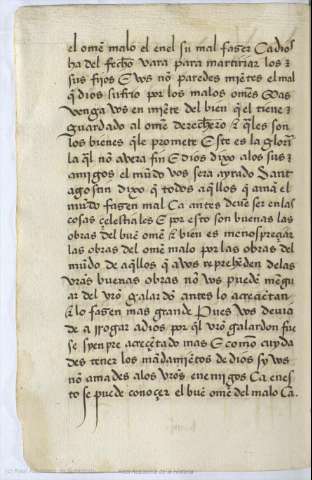 el ome malo el en el su mal faser Ca dios
ha del fecho vara para martiriar los ⁊
sus fijos E vos no paredes mietes el mal
q dios sufrio por los malos omes Mas
venga vos en miete del bien q el tiene ⁊
guardado al ome derechero ⁊ qles son
los bienes qle promete Este es la gloria
la ql no avera fin E dios dixo a los sus ⁊
amigos el mudo vos sera ayrado Sant
agostin dixo q todos aqllos q ama el
mudo fasen mal Ca antes deue ser en las
cosas çelestiales E por esto son buenas las
obras del bue ome ⁊ bien es menospreçar
las obras del ome malo por las obras del
mudo de aqllos q a vos reprehenden de las
vras buenas obras no vos puede meg
uar del vro galardo antes lo acreçetan
⁊ lo fasen mas grande Pues vos deuia
de a rrogar a dios por q el vro galardon fue
se syenpre acreçetado mas E como cuyda
des tener los madamietos de dios sy vos
no amades a los vros enemigos Ca en es
to se puede conoçer el bue ome del malo Ca
Real Academia de la Historia